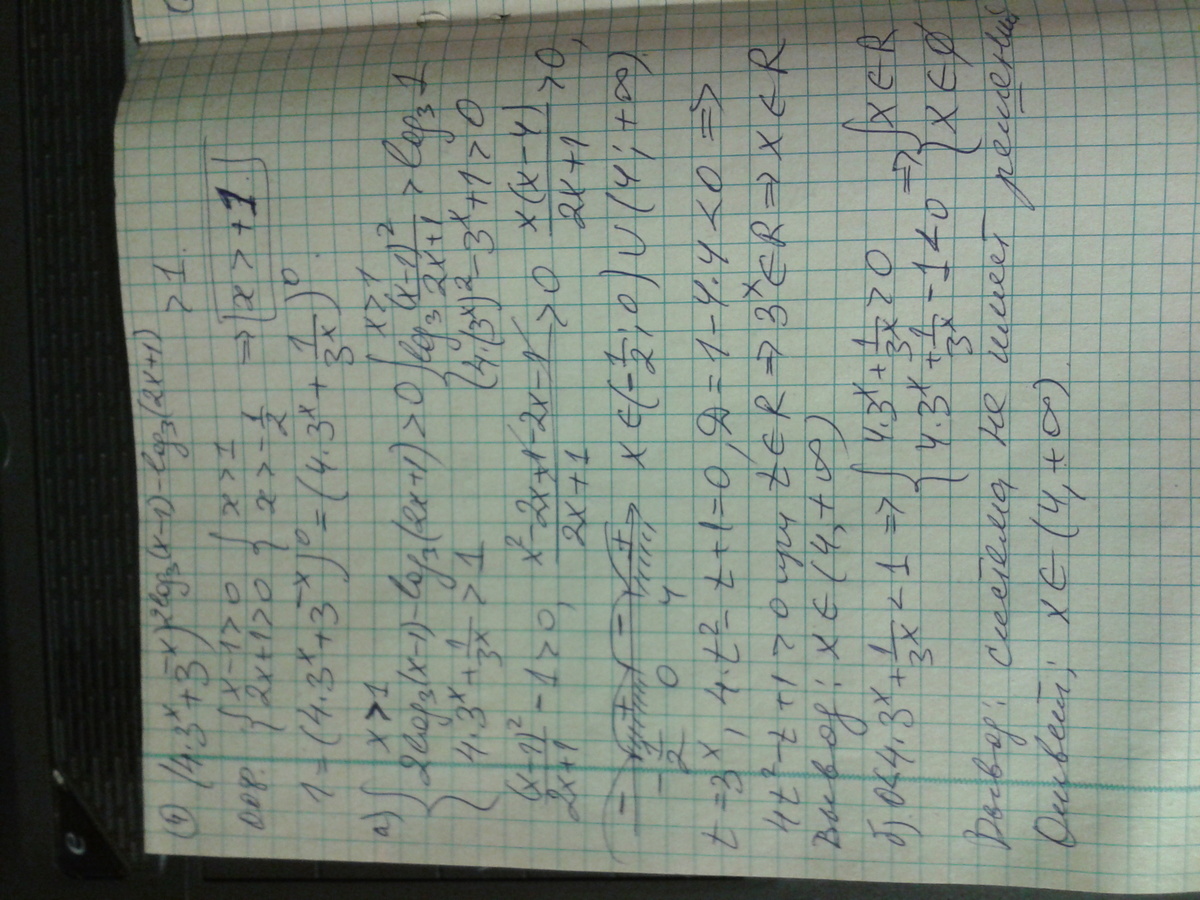 ④ (4·3ˣ+3⁻ˣ)^(2log₃(x-1)-log₃(2x+1)) > 1.
{ x-1>0
2x+1>0 { x>1
x>-1/2 => x>+1.
1=(4·3ˣ+3⁻ˣ)⁰=(4·3ˣ+1/3ˣ)⁰.
а) { x>1
2log₃(x-1)-log₃(2x+1)>0
4·3ˣ+1/3ˣ>1 { x>1
log₃ (x-1)²/(2x+1) > log₃1
4·(3ˣ)²-3ˣ+1>0
(x-1)²/(2x+1) -1>0, (x²-2x+1-2x-1)/(2x+1) >0 x(x-4)/(2x+1) >0,
- + - + x∈(-1/2; 0)∪(4; +∞).
-1/2 0 4
t=3ˣ, 4·t²-t+1=0, D=1-4·4<0 =>
4t²-t+1>0 при t∈R => 3ˣ∈R => x∈R
Вывод: x∈(4, +∞)
б). 0<4·3ˣ+1/3ˣ<1 => { 4·3ˣ+1/3ˣ>0
4·3ˣ+1/3ˣ-1<0 => { x∈R
x∈∅
Вывод: система не имеет решений
Ответ: x∈(4, +∞).